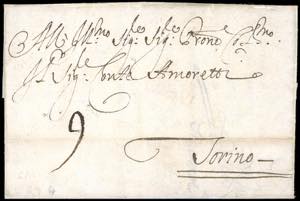 All Ill.mo Sig.e Sig.e Pron.e
Il Sig.e Conte Amoretti
9
Torino